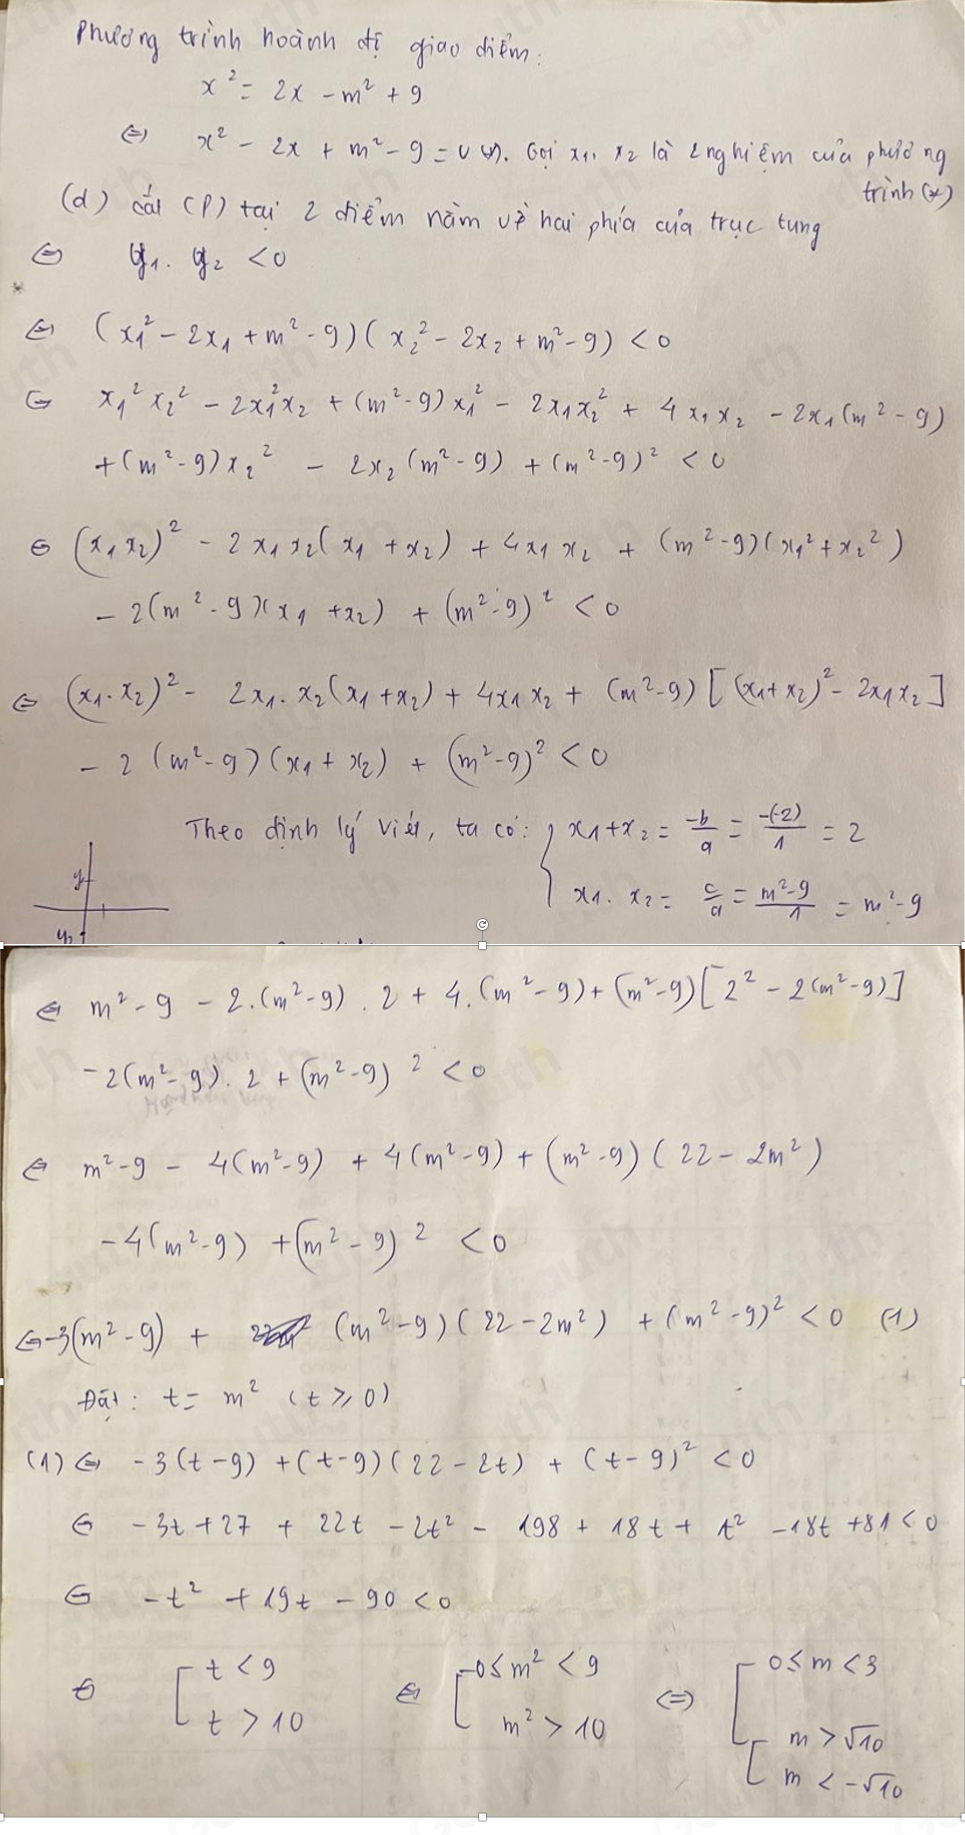 Phương trình hoành độ giao điểm:
x² = 2x - m² + 9
(=) x² - 2x + m² - 9 = 0 (*). Gọi x₁, x₂ là 2 nghiệm của phương
trình (*)
(d) cắt (P) tại 2 điểm nằm về hai phía của trục tung
⇔ y₁. y₂ < 0
⇔ (x₁² - 2x₁ + m² - 9)(x₂² - 2x₂ + m² - 9) < 0
⇔ x₁²x₂² - 2x₁²x₂ + (m² - 9)x₁² - 2x₁x₂² + 4x₁x₂ - 2x₁(m² - 9)
+ (m² - 9)x₂² - 2x₂(m² - 9) + (m² - 9)² < 0
⇔ (x₁x₂)² - 2x₁x₂(x₁ + x₂) + 4x₁x₂ + (m² - 9)(x₁² + x₂²)
- 2(m² - 9)(x₁ + x₂) + (m² - 9)² < 0
⇔ (x₁.x₂)² - 2x₁.x₂(x₁ + x₂) + 4x₁x₂ + (m² - 9)[(x₁ + x₂)² - 2x₁x₂]
- 2(m² - 9)(x₁ + x₂) + (m² - 9)² < 0
Theo định lý Viét, ta có: { x₁ + x₂ = -b/a = -(-2)/1 = 2
x₁. x₂ = c/a = m² - 9/1 = m² - 9
y₁
y₂
⇔ m² - 9 - 2.(m² - 9).2 + 4.(m² - 9) + (m² - 9)[2² - 2(m² - 9)]
- 2(m² - 9).2 + (m² - 9)² < 0
⇔ m² - 9 - 4(m² - 9) + 4(m² - 9) + (m² - 9)(22 - 2m²)
- 4(m² - 9) + (m² - 9)² < 0
⇔ -3(m² - 9) + (m² - 9)(22 - 2m²) + (m² - 9)² < 0 (1)
Đặt: t = m² (t ⩾ 0)
(1) ⇔ -3(t - 9) + (t - 9)(22 - 2t) + (t - 9)² < 0
⇔ -3t + 27 + 22t - 2t² - 198 + 18t + t² - 18t + 81 < 0
⇔ -t² + 19t - 90 < 0
⇔ [ t < 9 ⇔ [ 0 ≤ m² < 9 (=) [ 0 ≤ m < 3
t > 10 m² > 10 [ m > √10
m < -√10